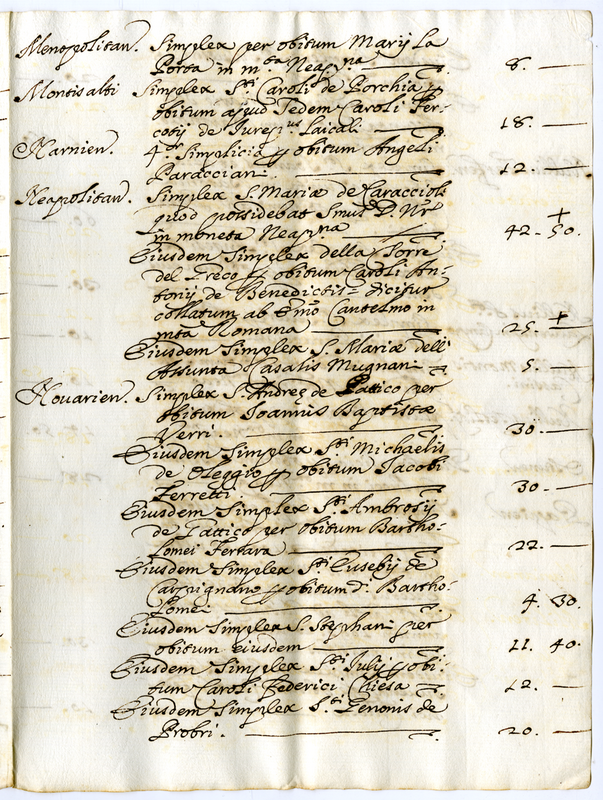 Menopolitan. Simplex per obitum Marij La
Porta in mta Neapna 8. —
Montisalti Simplex Sti Caroli de Porchia p
obitum apud Sedem Caroli Fer-
cotij de Jurepus Laicali 18. —
Narnien. 4or Simplicia p obitum Angeli
Paraccian. 12. —
Neapolitan. Simplex S. Mariæ de Caracciolis
quod possidebat Smus D. Nr
in moneta Neapna 42 - 50.
Eiusdem Simplex della Torre
del Greco p obitum Caroli An-
tonij de Benedictis = dicitur
collatum ab Emo Cantelmo in
mta Romana 25. —
Eiusdem Simplex S. Mariæ dell'
Assunta Casalis Mugnan 5. —
Nouarien. Simplex S. Andreę de Pattico per
obitum Joannis Baptistæ
Verri. 30. —
Eiusdem Simplex Sti Michaelis
de Oleggio p obitum Jacobi
Ferretti 30. —
Eiusdem Simplex Sti Ambrosij
de Pattico per obitum Bartho-
lomei Ferrara 22. —
Eiusdem Simplex Sti Eusebij de
Carpignano p obitum Di Bartho-
lomei 4. 30.
Eiusdem Simplex S. Stephani per
obitum eiusdem 11. 40.
Eiusdem Simplex Sti Julij p obi-
tum Caroli Federici Chiesa 12. —
Eiusdem Simplex Sti Zenonis de
Probri. 20. —